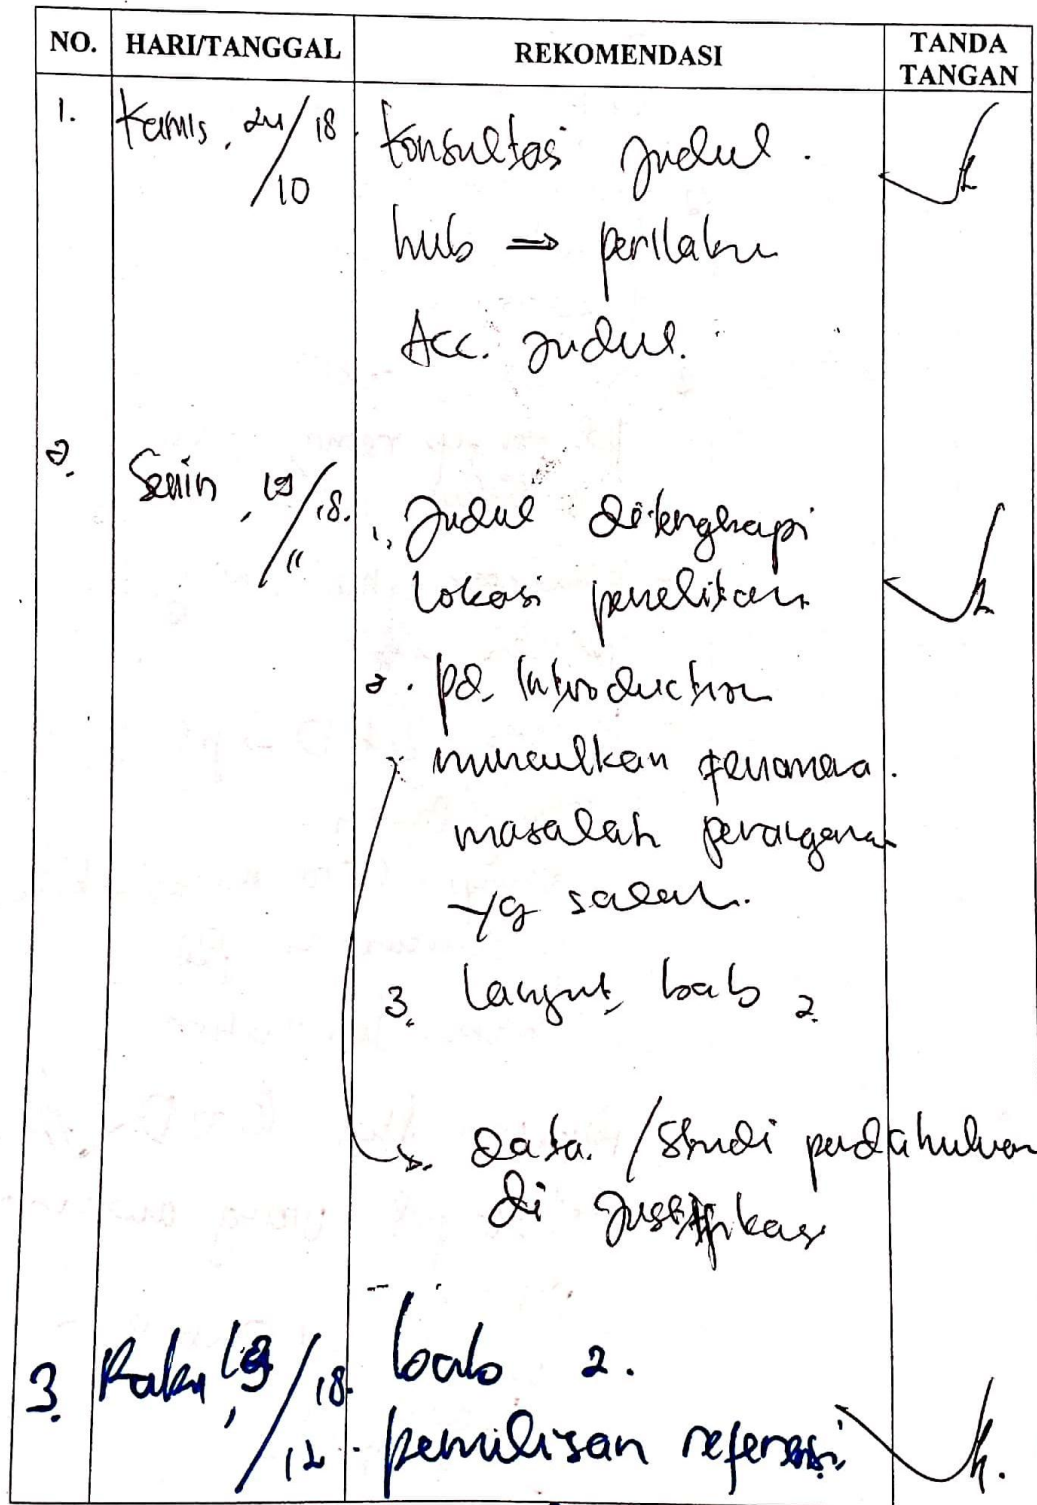 NO. HARI/TANGGAL REKOMENDASI TANDA TANGAN
1. Kamis, 24/10 18 Konsultasi judul.
hub ⇒ perilaku
Acc. judul.
2. Senin, 19/11 18. 1. Judul dilengkapi
lokasi penelitian
2. pd. Introduction
munculkan fenomena.
masalah
yg salah.
3. Lanjut bab 2.
data. / Studi pendahuluan
di justifikasi
3. Rabu, 19/12 18. bab 2.
pemilisan referensi